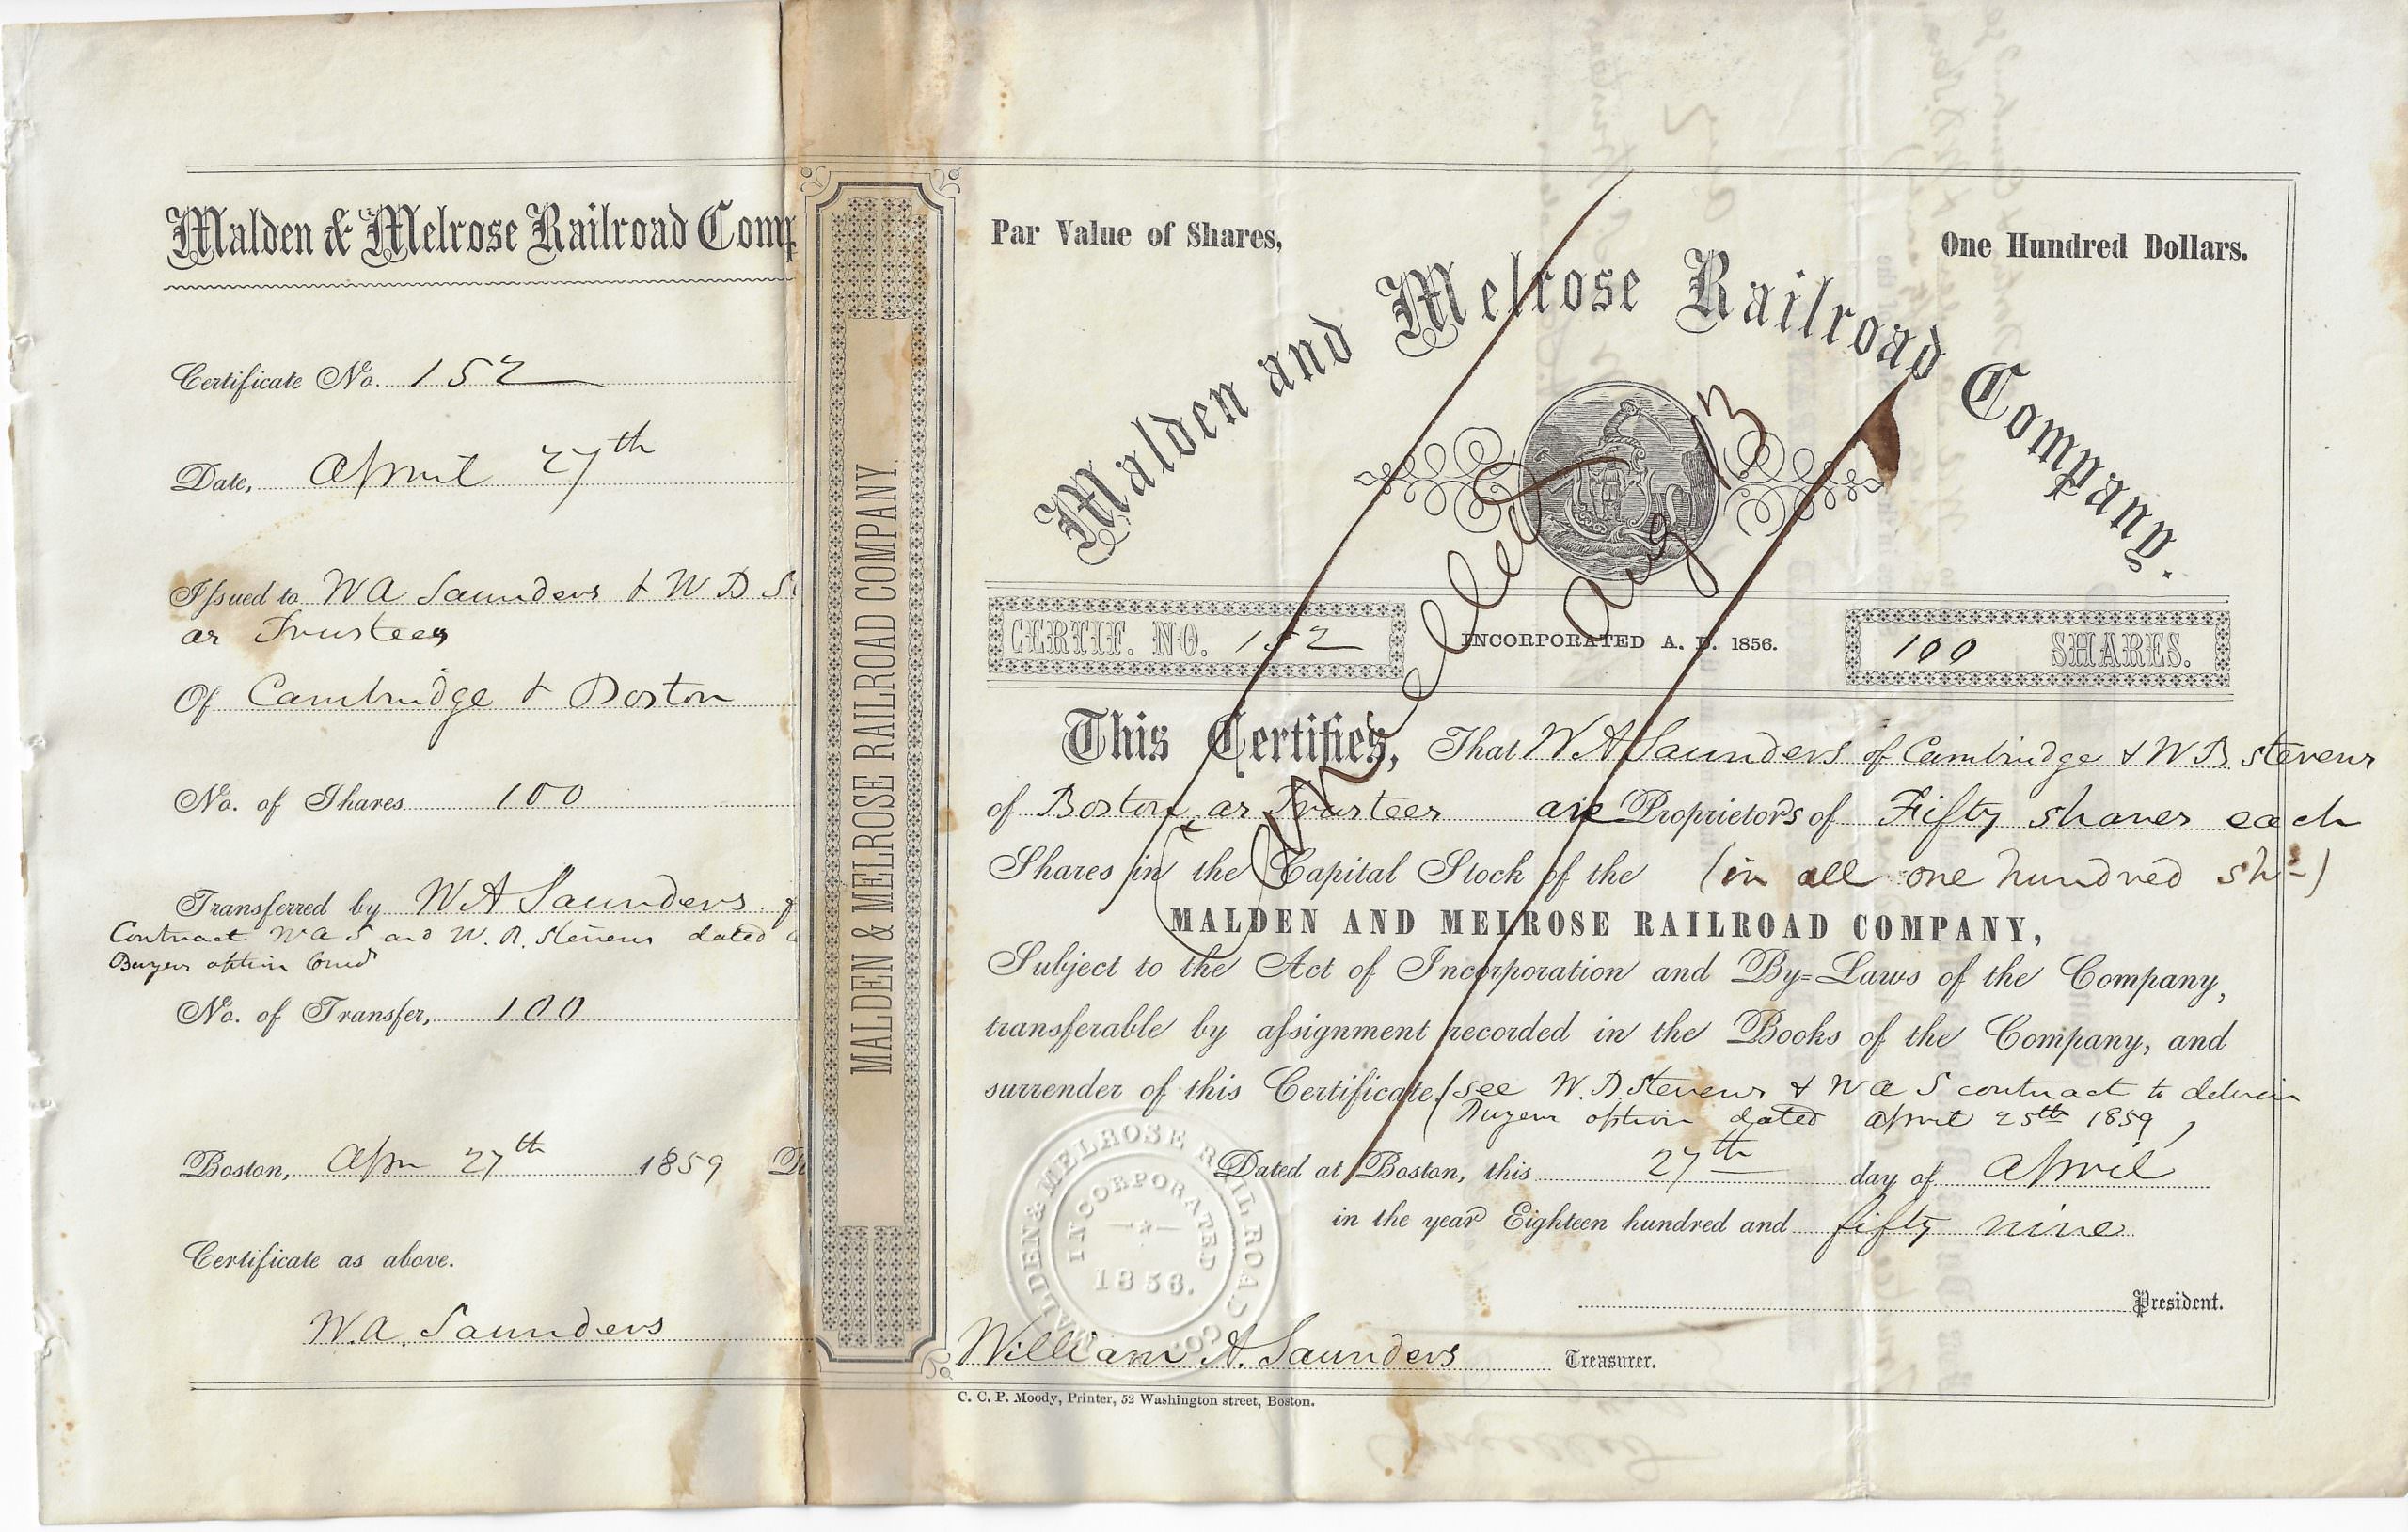 Malden & Melrose Railroad Comp
Certificate No. 152
Date, April 27th
Issued to W A Saunders & W B St
as Trustees
Of Cambridge & Boston
No. of Shares 100
Transferred by W A Saunders
Contract W A S and W. B. Stevens dated
Buyers option
No. of Transfer, 100
Boston, Apr 27th 1859
Certificate as above.
W. A. Saunders
MALDEN & MELROSE RAILROAD COMPANY.
Par Value of Shares, One Hundred Dollars.
Malden and Melrose Railroad Company.
Cancelled
Aug 13
CERTIF. NO. 152 INCORPORATED A. D. 1856. 100 SHARES.
This Certifies, That W A Saunders of Cambridge & W B Stevens
of Boston, as Trustees are Proprietors of Fifty shares each
Shares in the Capital Stock of the (in all one hundred shs)
MALDEN AND MELROSE RAILROAD COMPANY,
Subject to the Act of Incorporation and By-Laws of the Company,
transferable by assignment recorded in the Books of the Company, and
surrender of this Certificate. (see W. B. Stevens & W A S contract to deliver
Buyers option dated April 25th 1859)
Dated at Boston, this 27th day of April
in the year Eighteen hundred and fifty nine
President.
William A. Saunders Treasurer.
MALDEN & MELROSE RAIL ROAD CO.
INCORPORATED
1856.
C. C. P. Moody, Printer, 52 Washington street, Boston.